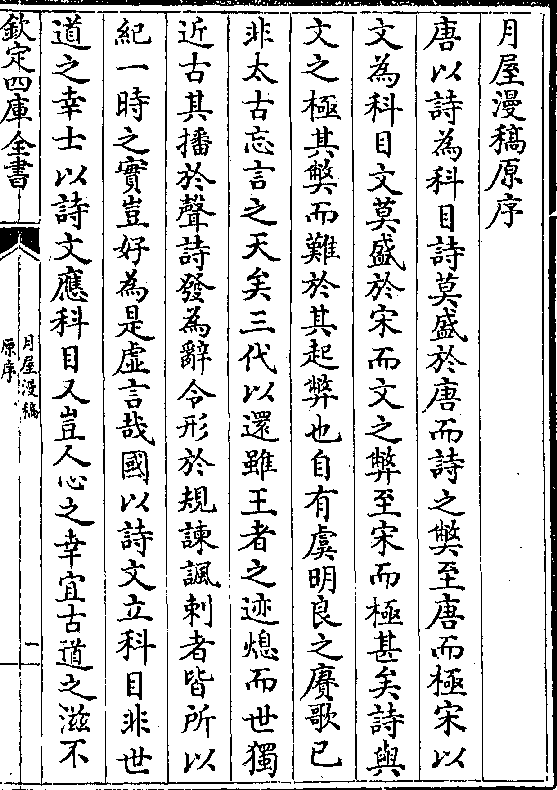 月屋漫稿原序
唐以詩為科目詩莫盛於唐而詩之獘至唐而極宋以
文為科目文莫盛於宋而文之弊至宋而極甚矣詩與
文之極其獘而難於其起弊也自有虞明良之賡歌已
非太古忘言之天矣三代以還雖王者之迹熄而世獨
近古其播於聲詩發為辭令形於規諫諷刺者皆所以
紀一時之實豈好為是虚言哉國以詩文立科目非世
道之幸士以詩文應科目又豈人心之幸宜古道之滋不
欽定四庫全書
月屋漫稿
原序
一